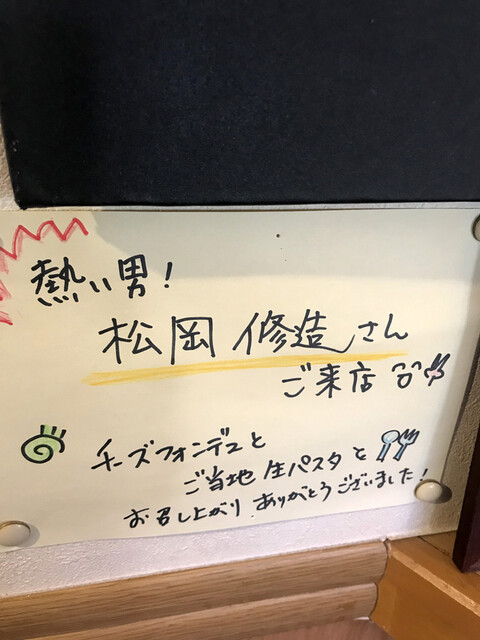 熱い男!
松岡 修造さん
ご来店
チーズフォンデュと
ご当地 生パスタと
お召し上がり ありがとうございました!